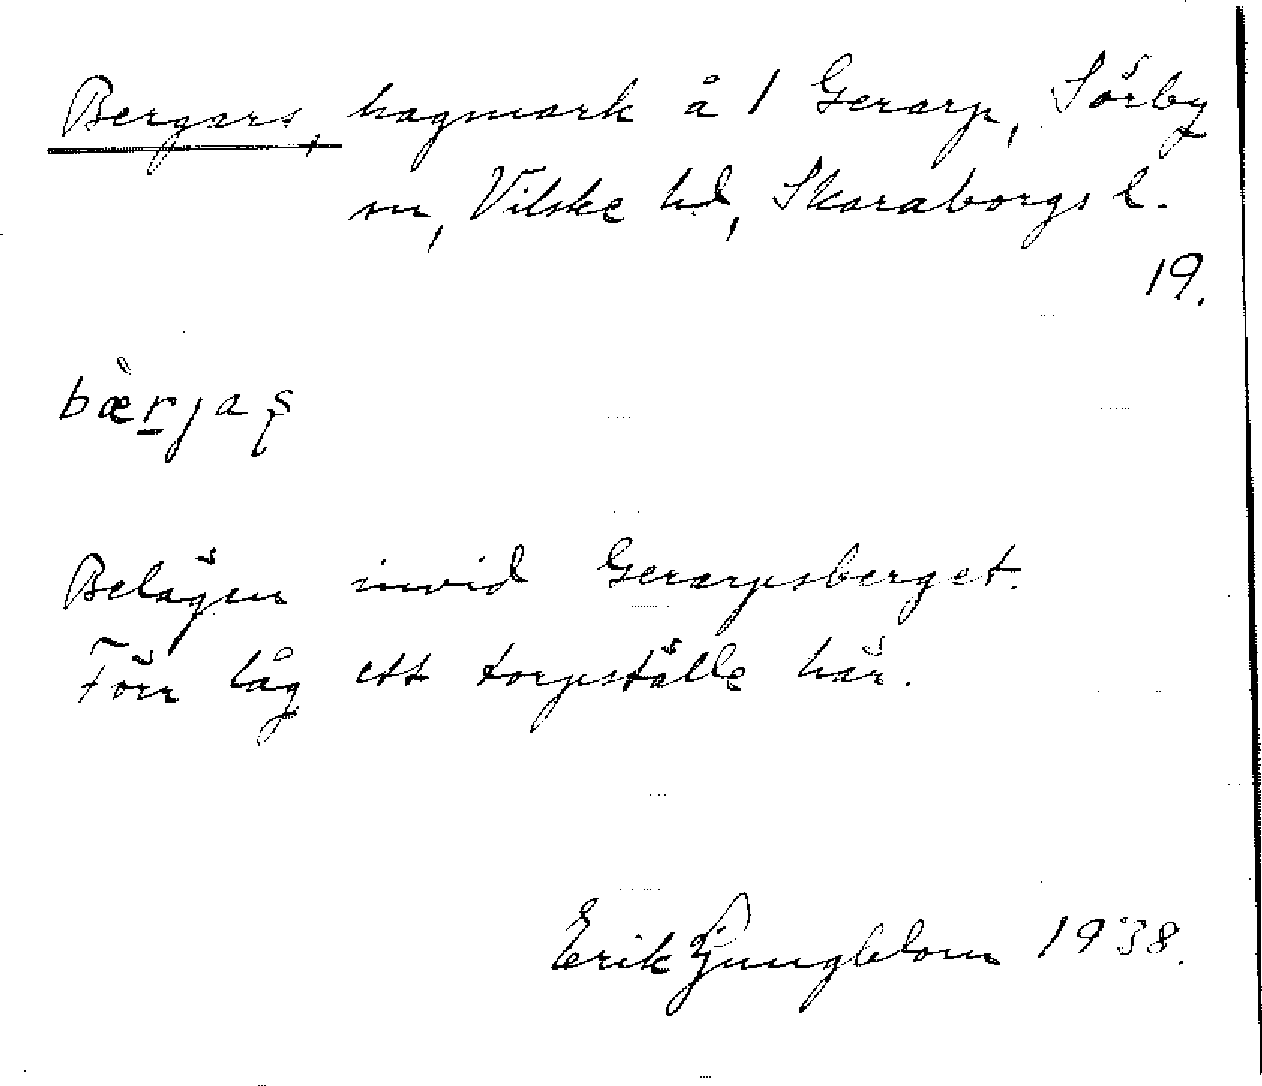 Bergars, hagmark å 1 Gerarp, Sörby
sn, Vilske hd, Skaraborgs l.
19.
bæ̀rjaş
Belägen invid Gerarpsberget.
Förr låg ett torpställe här.
Erik Ljungblom 1938.